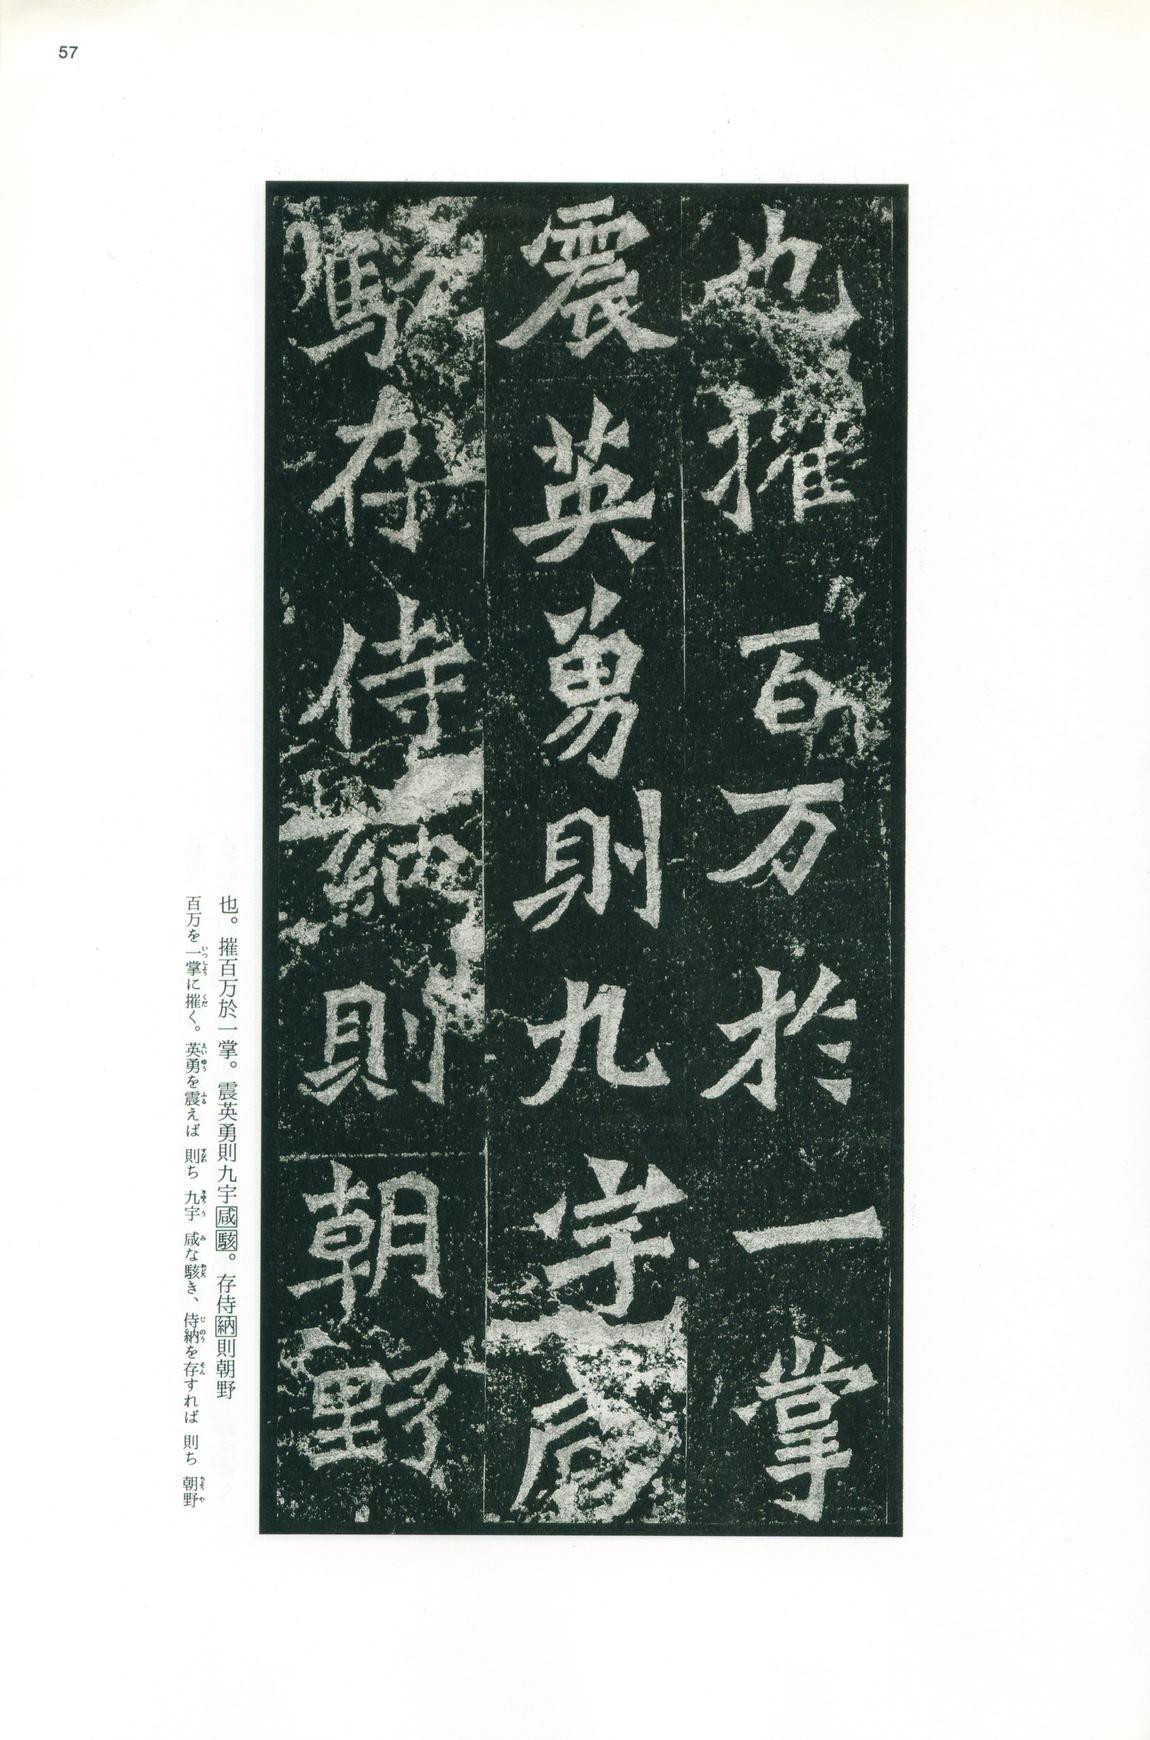 57
也摧百万於一掌
震英勇則九宇咸
駭存侍納則朝野
也。摧百万於一掌。震英勇則九宇咸駭。存侍納則朝野
百万を一掌に摧く。英勇を震えば 則ち 九宇 咸な駭き、侍納を存すれば 則ち 朝野